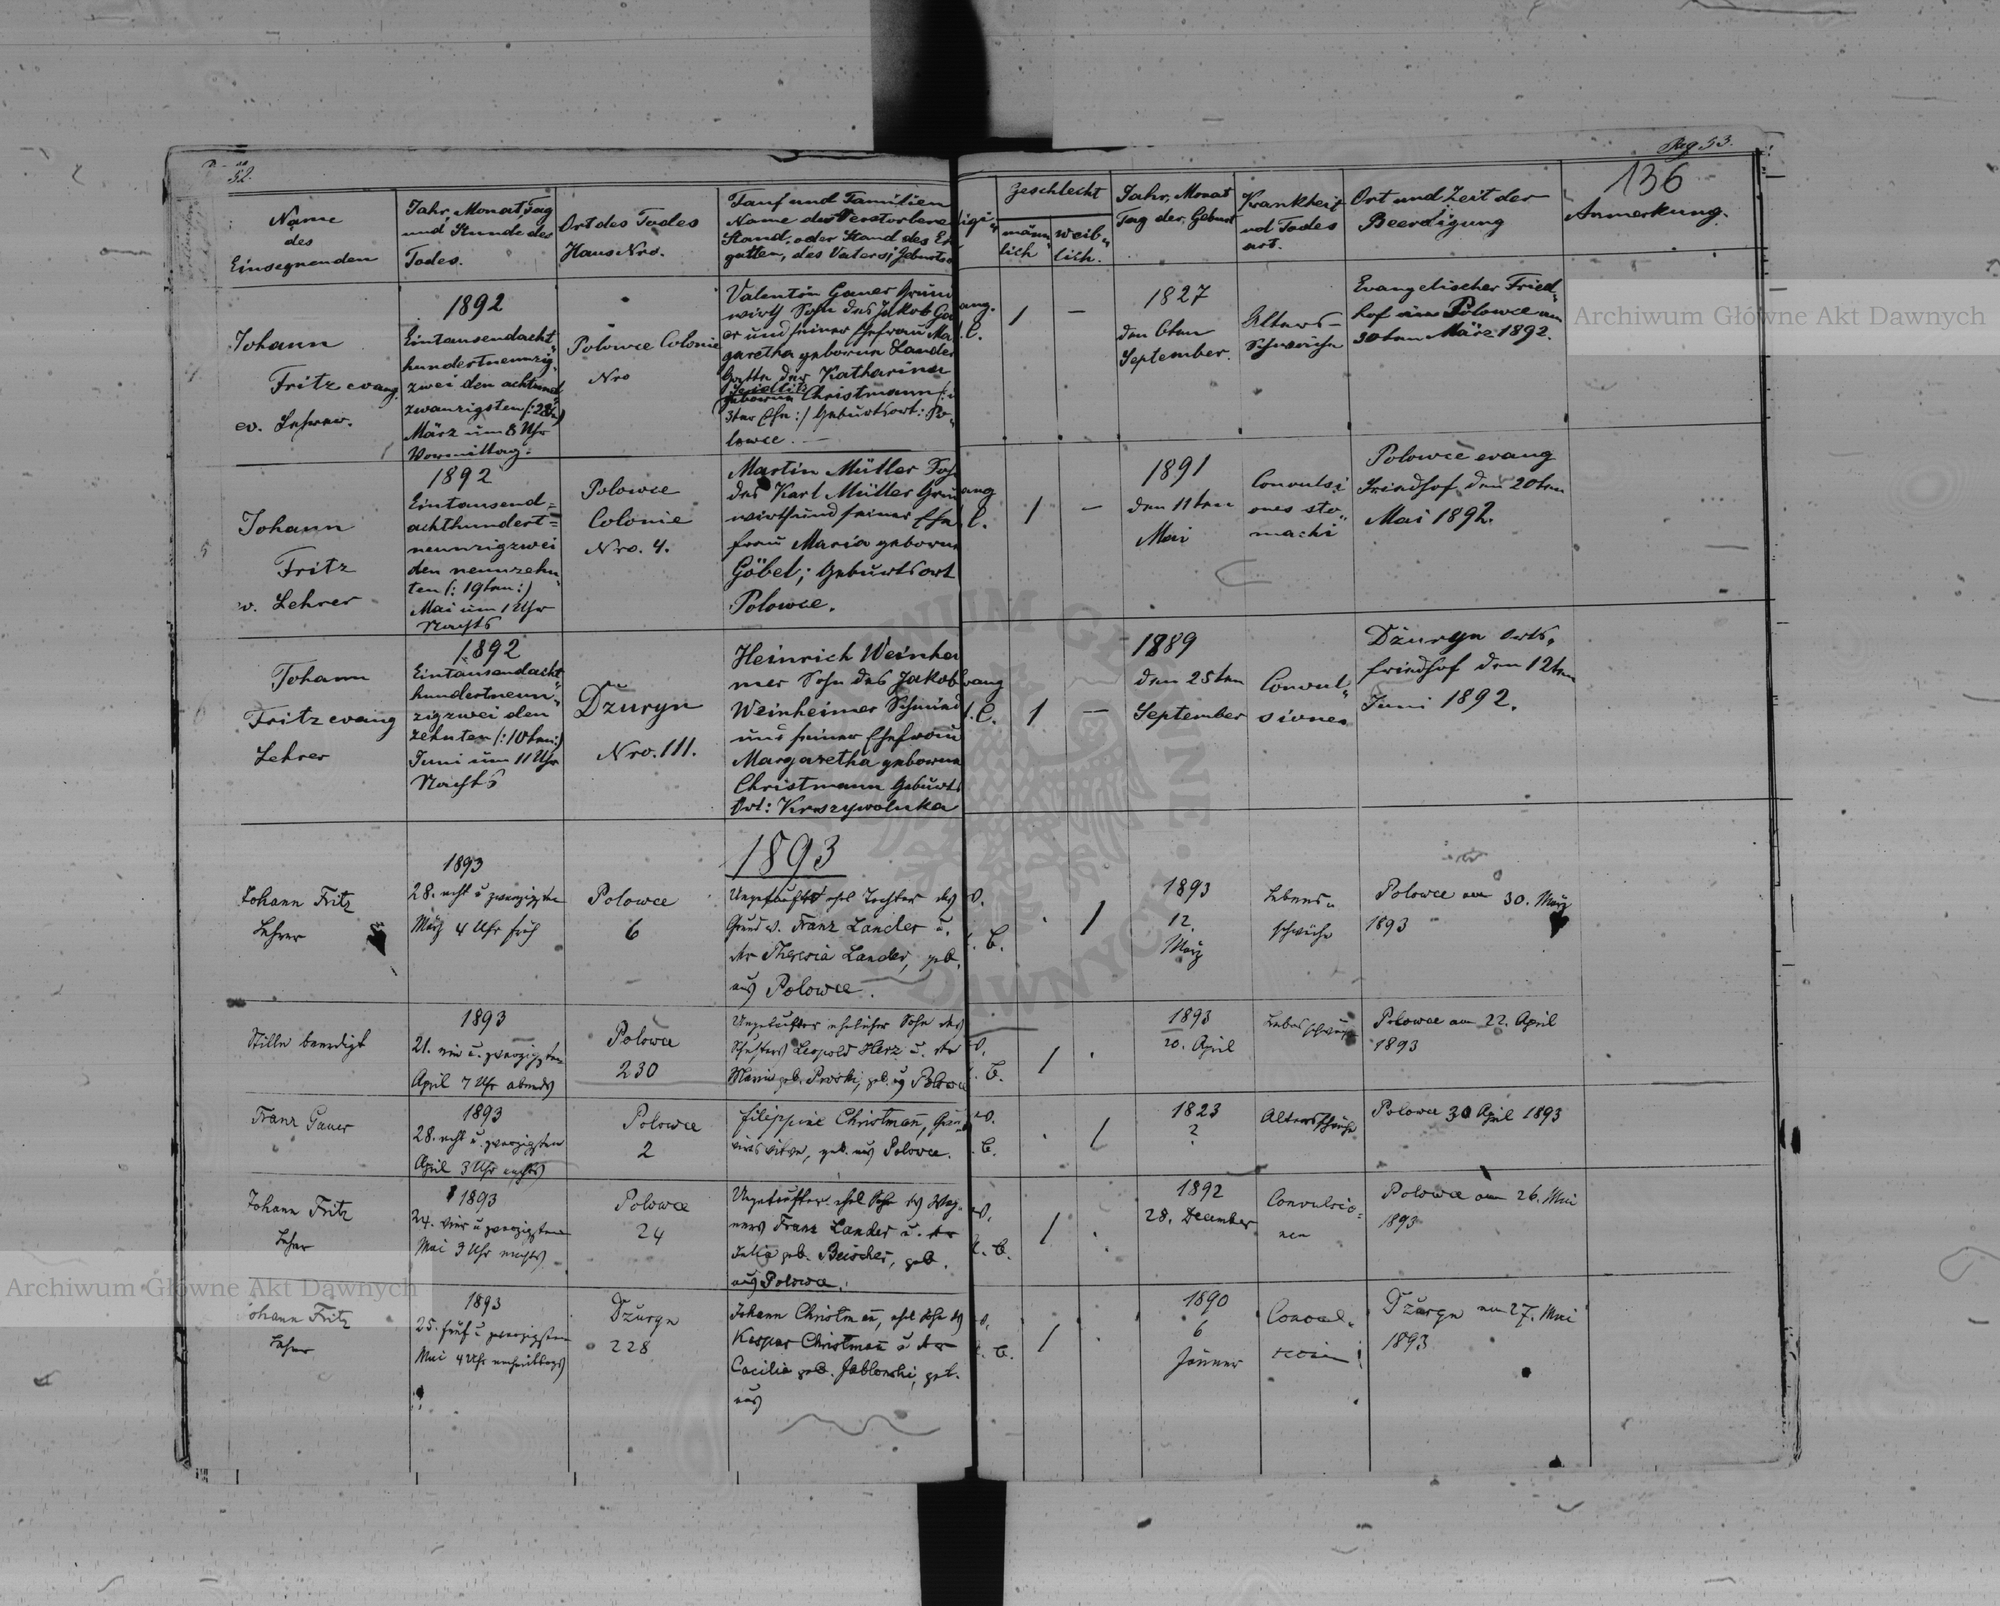 52.
Pag 53.
136
Name
des
Einsegnenden
Jahr, Monat, Tag
und Stunde des
Todes.
Ort des Todes
Haus Nro.
Tauf und Familien
Name des Verstorbene
Stand, oder Stand des Eh
gatten, des Vaters; Geburtso
ligi=
Geschlecht
männ=
lich
weib=
lich.
Jahr, Monat
Tag der Geburt
Krankheit
und Todes
art.
Ort und Zeit der
Beerdigung
Anmerkung.
Johann
Fritz evang.
ev. Lehrer.
1892
Eintausendacht
hundertneunzig
zwei den achtund
zwanzigsten (:28
März um 8 Uhr
Vormittag.
Polowce Colonie
Nro
Valentin Gauer Grund
wirth Sohn des Jakob Gau
er und seiner Ehefrau Ma
garetha geborne Lander
Gatte der Katharina
geborne Christmann (:
3ter Ehe:) Geburtsort: Po=
lowce.
ang.
C.
1
—
1827
den 6ten
September.
Alters=
Schwäche
Evangelischer Fried=
hof in Polowce am
30ten März 1892.
5
Johann
Fritz
v. Lehrer
1892
Eintausend=
achthundert=
neunzigzwei
den neunzehn
ten (:19ten:)
Mai um 1 Uhr
Nachts
Polowce
Colonie
Nro. 4.
Martin Müller Soh
des Karl Müller Grun
wirth und seiner Ehe
frau Maria geborne
Göbel; Geburtsort
Polowce.
ang
C.
1
—
1891
den 11ten
Mai
Convulsi
ones sto=
machi
Polowce evang
Friedhof den 20ten
Mai 1892.
6
Johann
Fritz evang
Lehrer
1892
Eintausendacht
hundertneun=
zigzwei den
zehnten (:10ten:)
Juni um 11 Uhr
Nachts
Dzuryn
Nro. 111.
Heinrich Weinhei
mer Sohn des Jakob
Weinheimer Schmied
und seiner Ehefrau
Margaretha geborne
Christmann Geburts
Ort: Krszywoluka
vang
C.
1
—
1889
den 25ten
September
Convul=
siones
Dzuryn Orts=
friedhof den 12ten
Juni 1892.
1893
Johann Fritz
Lehrer
1893
28. acht u zwanzigsten
März 4 Uhr früh
Polowce
6
Ungetaufte ehel Tochter des
Grundw. Franz Lander u.
der Theresia Lander, geb.
aus Polowce.
C.
1
1893
12.
März
Lebens=
schwäche
Polowce am 30. März
1893
Stille beerdigt
1893
21. ein u. zwanzigsten
April 7 Uhr abends
Polowce
230
Ungetaufter ehelicher Sohn des
Schusters Leopold Herz u. der
Maria geb. Proski, geb. aus Polowce
C.
1
1893
20. April
Lebensschwäche
Polowce am 22. April
1893
Franz Gauer
1893
28. acht u. zwanzigsten
April 3 Uhr nachts
Polowce
2
Filippine Christmann, Grund
wirtswitwe, geb. aus Polowce.
C.
1
1823
?
Altersschwäche
Polowce 30 April 1893
Johann Fritz
Lehrer
1893
24. vier u zwanzigsten
Mai 9 Uhr nachts
Polowce
24
Ungetaufter ehel Sohn des Wag=
ners Franz Lander u. der
Julia geb. Beischer, geb.
aus Polowce.
C.
1
1892
28. December
Convulsio=
nen
Polowce am 26. Mai
1893
Johann Fritz
Lehrer
1893
25. fünf u zwanzigsten
Mai 4 Uhr nachmittags
Dzuryn
228
Johann Christmann, ehel Sohn des
Kaspar Christmann u der
Cacilia geb. Jablonski, geb.
aus
C.
1
1890
6
Jänner
Dzuryn am 27. Mai
1893
Archiwum Główne Akt Dawnych
Archiwum Główne Akt Dawnych